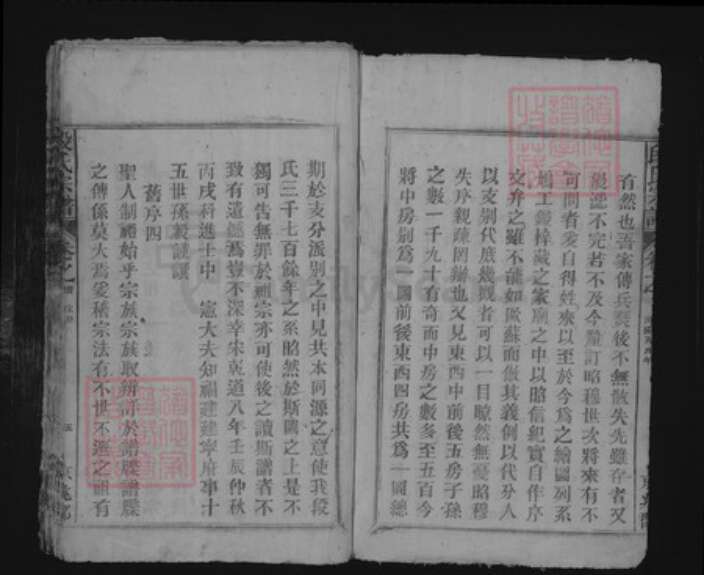 有然也吾家傳兵燹後不無散失先雖存者又
漫漶不完若不及今釐訂昭穆世次將來有不
可問者爰自得姓來以至於今為之繪圖列系
鳩工鋟梓藏之家廟之中以昭信紀實自作序
文弁之雖不能如歐蘇而倣其義例以代分人
以支别代庶幾觀者可以一目瞭然無憂昭穆
失序親疎罔辯也又見東西中前後五房子孫
之數一千九十有奇而中房之數多至五百今
將中房别為一圖前後東西四房共為一圖總
期於支分派别之中見共本同源之意使我段
氏三千七百餘年之系昭然於斯圖之上是不
獨可告無罪於祖宗亦可使後之讀斯譜者不
致有遺憾焉豈不深幸宋乾道八年壬辰仲秋
丙戌科進士中 憲大夫知福建建寧府事十
五世孫毅誠謹
舊序四
聖人制禮始乎宗族宗族取辨詳於譜牒譜牒
之傳係莫大焉爰稽宗法有不世不遷之祖有
段氏宗譜
卷之
五
京兆郡